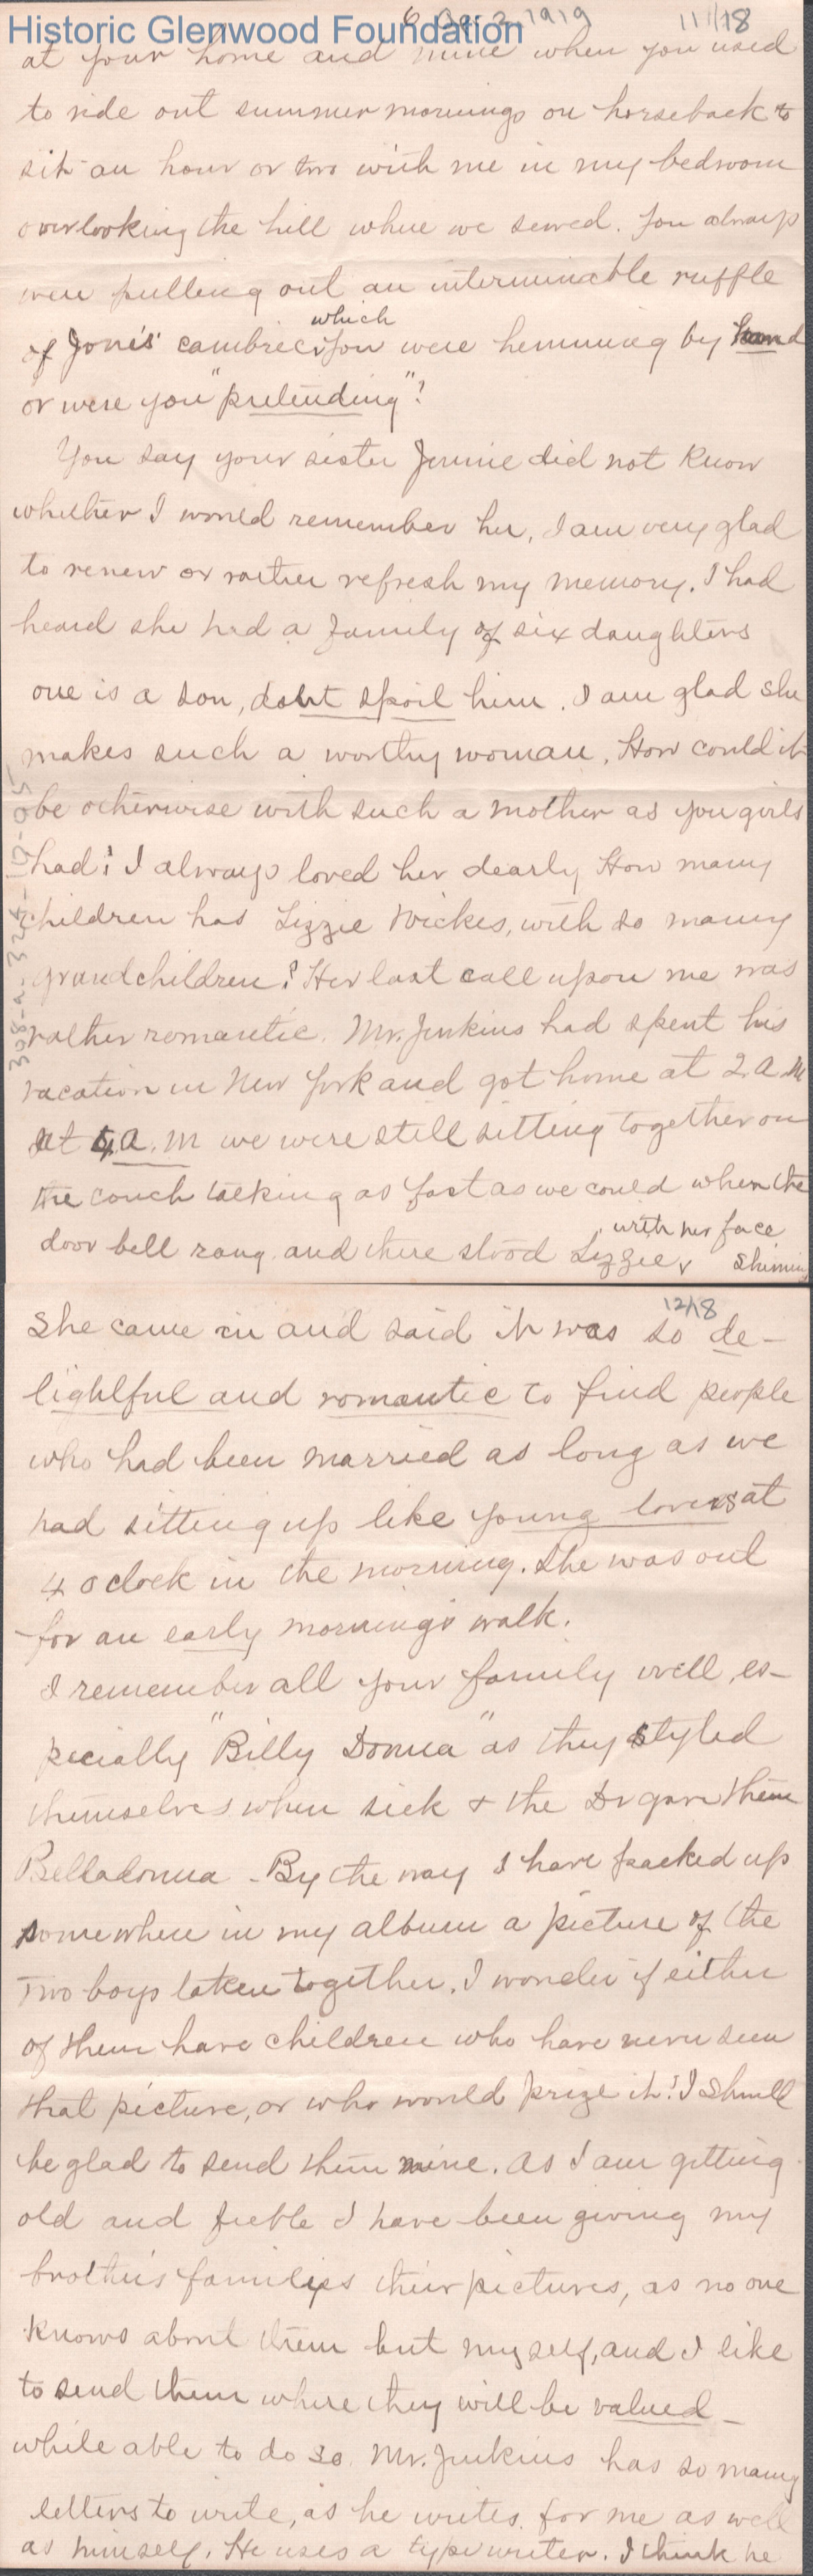 Historic Glenwood Foundation
6 2 1919 11/18
at your home and mine when you used
to ride out summer mornings on horseback to
sit an hour or two with me in my bedroom
overlooking the hill while we sewed. You always
were pulling out an interminable ruffle
of Jone's cambric which you were hemming by hand
or were you "pretending"?
You say your sister Jennie did not know
whether I would remember her, I am very glad
to renew or rather refresh my memory. I had
heard she had a family of six daughters
one is a son, don't spoil him. I am glad she
makes such a worthy woman. How could it
be otherwise with such a mother as you girls
had? I always loved her dearly How many
children has Lizzie Wickes, with so many
grandchildren? Her last call upon me was
rather romantic. Mr. Jenkins had spent his
vacation in New York and got home at 2 a.m
at 4 a.m we were still sitting together on
the couch talking as fast as we could when the
door bell rang and there stood Lizzie, with her face shining
12/18
She came in and said it was so de-
lightful and romantic to find people
who had been married as long as we
had sitting up like young lovers at
4 oclock in the morning. She was out
for an early morning's walk.
I remember all your family well, es-
pecially "Billy Donna" as they styled
themselves when sick & the Dr gave them
Belladonna - By the way I have packed up
somewhere in my album a picture of the
two boys taken together. I wonder if either
of them have children who have never seen
that picture, or who would prize it? I shall
be glad to send them mine. As I am getting
old and feeble I have been giving my
brother's families their pictures, as no one
knows about them but myself, and I like
to send them where they will be valued -
while able to do so. Mr. Jenkins has so many
letters to write, as he writes for me as well
as himself. He uses a typewriter. I think he